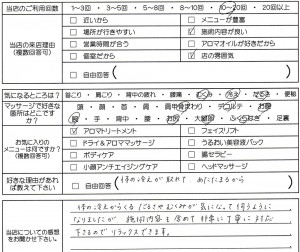 当店のご利用回数 1～3回・3～5回・5～8回・8～10回・10～20回・20回以上
当店の来店理由(複数回答可)
□ 近いから □ メニューが豊富
□ 場所が行きやすい ☑ 施術内容が良い
□ 営業時間が合う □ アロマオイルが好きだから
□ 個室だから ☑ 店の雰囲気
□ 自由回答( )
気になるところは? 首こり・肩こり・背中の疲れ・腰痛・むくみ・冷え・だるさ・便秘
マッサージで好きな箇所はどこですか?
頭・顔・首・肩・肩甲骨まわり・デコルテ・お腹
腕・手・背中・腰・お尻・太もも・ふくらはぎ・足裏
お気に入りのメニューは何ですか?(複数回答可)
☑ アロマトリートメント □ フェイスリフト
□ ドライ&アロママッサージ □ うるおい美容液パック
□ ボディケア □ 腸セラピー
□ 小顔アンチエイジングケア □ ヘッドマッサージ
好きな理由があれば教えて下さい
□ 自由回答( 体の冷えが取れて あたたまるから )
当店についての感想をお聞かせ下さい。
体の冷えからくる だるさやむくみが気になって 伺うように
なりましたが 施術内容も含めて 非常に丁寧に対応
下さるので リラックスできます。